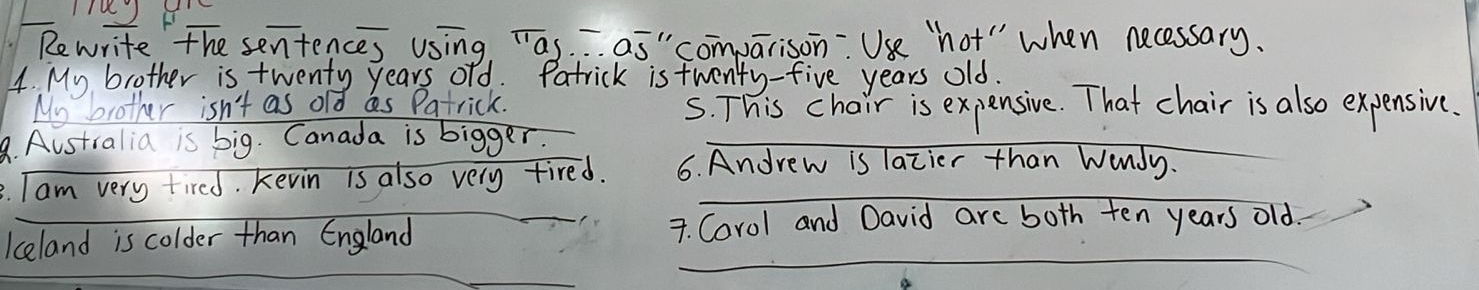 They are
Rewrite the sentences using "as... as" comparison. Use "not" when necessary.
1. My brother is twenty years old. Patrick is twenty-five years old.
My brother isn't as old as Patrick.
2. Australia is big. Canada is bigger.
3. I am very tired. Kevin is also very tired.
Iceland is colder than England
5. This chair is expensive. That chair is also expensive.
6. Andrew is lazier than Wendy.
7. Carol and David are both ten years old.